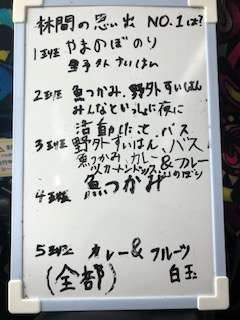 林間の思い出 NO.1は?
1班 やまのぼり
野外すいはん
2班 魚つかみ、野外すいはん
みんなといっしょに夜に
活動したこと、バス
3班 野外すいはん、バス
魚つかみ、カレー&カレー
のぼり
4班 魚つかみ
5班 カレー& フルーツ
(全部) 白玉